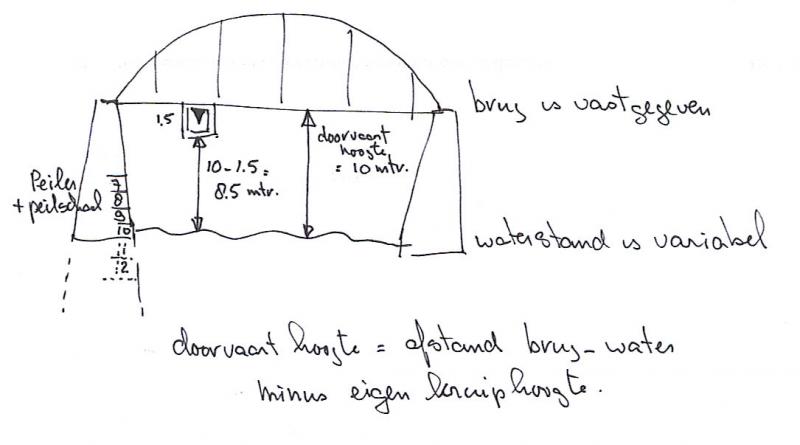 brug is vastgegeven
1.5
doorvaart
hoogte
= 10 mtr.
10-1.5=
8.5 mtr.
Peiler
+ peilschaal
7
8
9
10
11
12
waterstand is variabel
doorvaart hoogte = afstand brug-water
minus eigen kruiphoogte.